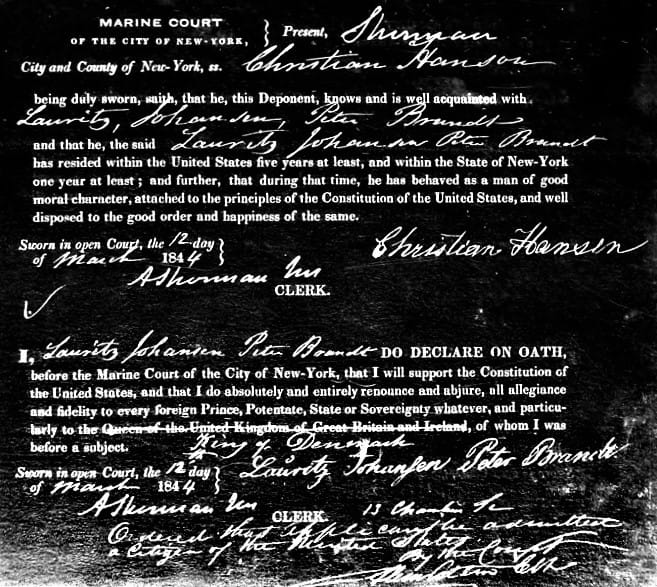 MARINE COURT
OF THE CITY OF NEW-YORK, } Present, Sherman
City and County of New-York, ss. Christian Hanson
being duly sworn, saith, that he, this Deponent, knows and is well acquainted with
Lauritz, Johansen, Peter Brandt
and that he, the said Lauritz Johansen Peter Brandt
has resided within the United States five years at least, and within the State of New-York
one year at least; and further, that during that time, he has behaved as a man of good
moral character, attached to the principles of the Constitution of the United States, and well
disposed to the good order and happiness of the same.
Sworn in open Court, the 12 day }
of March 1844
Christian Hansen
A Sherman
CLERK.
I, Lauritz Johansen Peter Brandt DO DECLARE ON OATH,
before the Marine Court of the City of New-York, that I will support the Constitution of
the United States, and that I do absolutely and entirely renounce and abjure, all allegiance
and fidelity to every foreign Prince, Potentate, State or Sovereignty whatever, and particu-
larly to the Queen of the United Kingdom of Great Britain and Ireland, of whom I was
before a subject. King of Denmark
Sworn in open Court, the 12 day }
of March 1844
Lauritz Johansen Peter Brandt
A Sherman
CLERK.
13
Ordered that applicant be admitted
a Citizen of the United States
By the Court